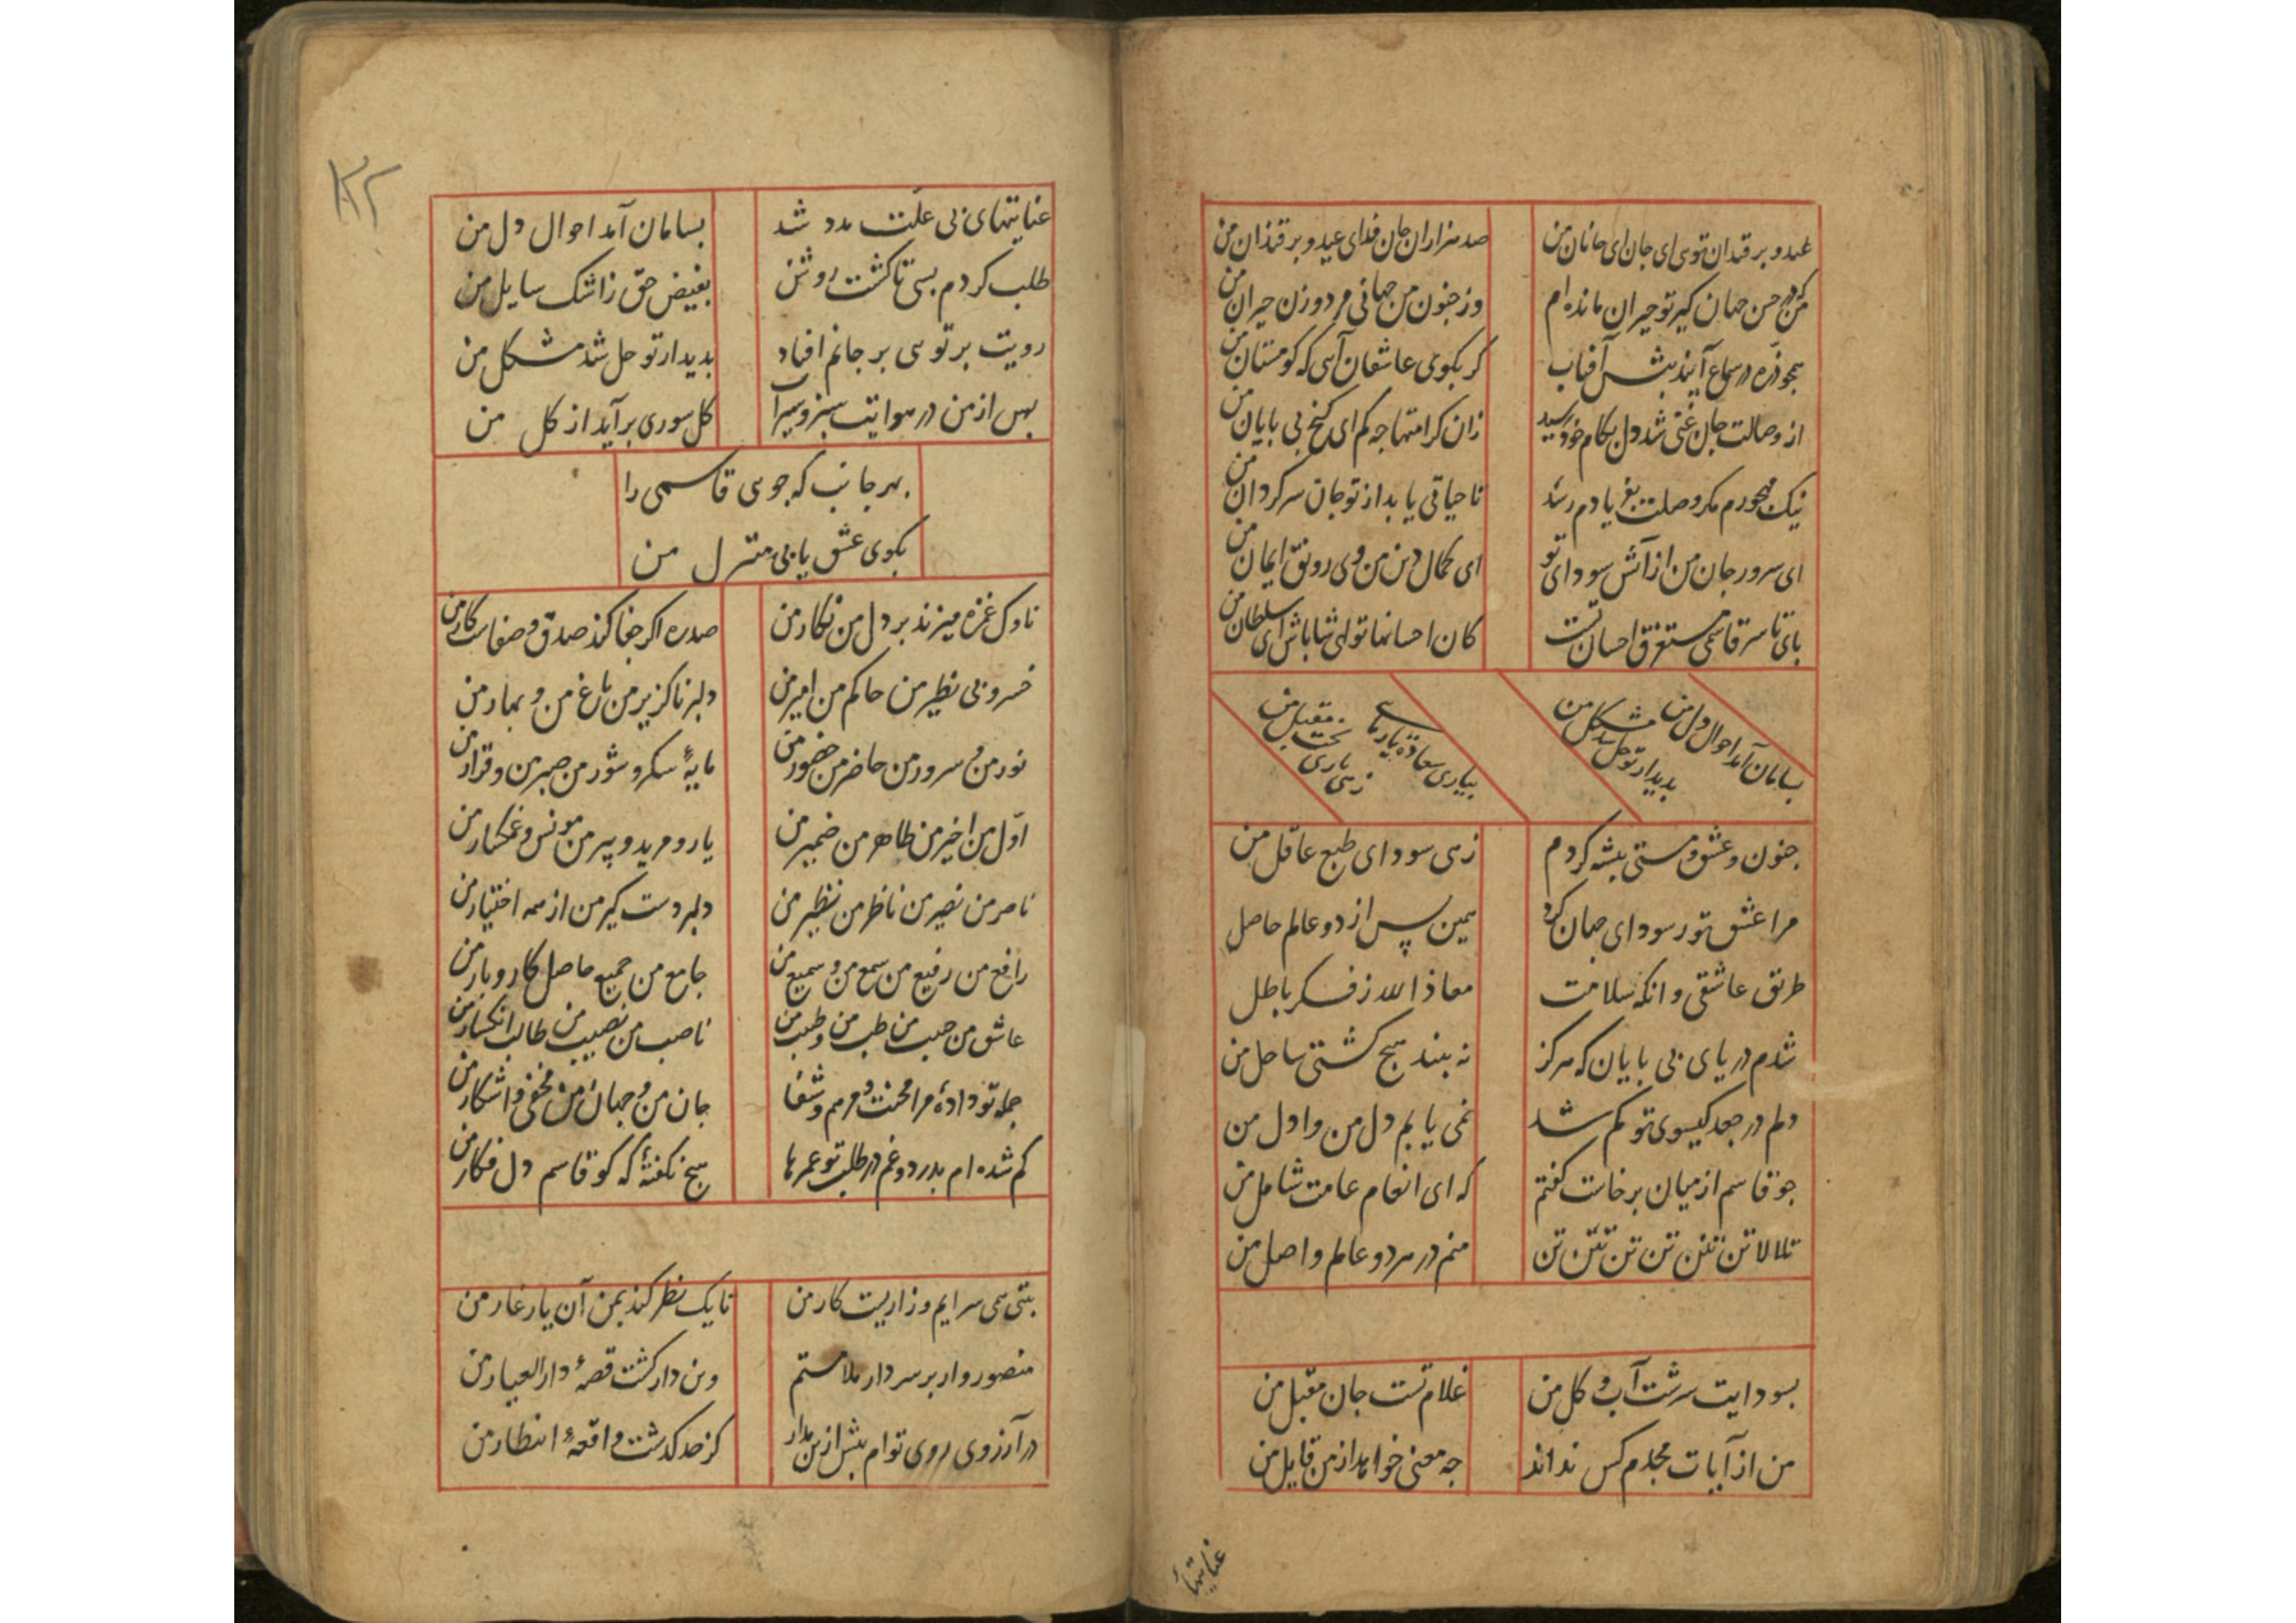 عید و برقندان توی ای جان و ای جانان من
صد هزاران جان فدای عید و برقندان من
من که در حسن جهان کیر تو حیران مانده ام
وز جنون من جهانی مرد و زن حیران من
همچو ذره در سماع آیند پیش آفتاب
کر بکوی عاشقان آی که کو مستان من
از وصالت جان غنی شد دل بکام خود رسید
زان کرامتها چه کم ای کنج بی پایان من
نیک مهجورم مکر وصلت بفریادم رسد
تا حیاتی یابد از تو جان سرکردان من
ای سرور جان من از آتش سودای تو
ای کمال دین من وی رونق ایمان من
پای تا سر قاسمی مستغرق احسان تست
کان احسانها توای شاباش ای سلطان من
بسامان آمد احوال دل من
بدیدار تو حل شد مشکل من
بیاری سعادت یار مایی
زهی یاری بخت مقبل من
جنون و عشق و مستی پیشه کردم
زهی سودای طبع عاقل من
مرا عشق تو رسوای جهان کرد
همین پس از دو عالم حاصل
طریق عاشقی وانکه سلامت
معاذ الله ز فکر باطل
شدم دریای بی پایان که هرکز
نه بیند هیچ کشتی ساحل من
دلم در جعد کیسوی تو کم شد
نمی یابم دل من وا دل من
چو قاسم از میان برخاست کفتم
که ای انعام عامت شامل من
تللا لا تن تنن تن تن تنن تن
منم در هر دو عالم واصل من
بسودایت سرشت آب و کل من
غلام تست جان مقبل من
من از آیات محکم کس نداند
چه معنی خواهد از من قایل من
عنایتهای
۱۳۲
عنایتهای بی علت مدد شد
بسامان آمد احوال دل من
طلب کردم بسی تا کشت روشن
بفیض حق ز اشک سایل من
رویت پرتوی بر جانم افتاد
بدیدار تو حل شد مشکل من
پس از من در هوایت سبز و سیراب
کل سوری برآید از کل من
بهر جانب که جوی قاسمی را
بکوی عشق یابی منزل من
ناوک غمزه میزند بر دل من نکار من
صد ره اکر جفا کند صدق و صفاست کار من
خسرو بی نظیر من حاکم من امیر من
دلبر ناکزیر من باغ من و بهار من
نور من و سرور من حاضر من حضور من
مایهٔ سکر و شور من صبر من و قرار من
اول من اخیر من ظاهر من ضمیر من
یار و مرید و پیر من مونس و غمکسار من
ناصر من نصیر من ناظر من نظیر من
دلبر دست کیر من از همه اختیار من
رافع من رفیع من سمع من و سمیع من
جامع من جمیع من حاصل کار و بار من
عاشق من حبیب من طب من و طبیب من
ناصب من نصیب من طالب انکسار من
جمله تو دادهٔ مرا محنت و مرهم و شفا
جان من و جهان من مخفی و اشکار من
کم شده ام بدرد و غم در طلب تو عمرها
هیچ نکفتهٔ که کو قاسم دل فکار من
بیتی می سرایم و زاریست کار من
تا یک نظر کند بمن آن یار غار من
منصور وار بر سر دار ملامتم
وین دار کشت قصهٔ دار العیار من
در آرزوی روی توام بیش ازین مدار
کز حد کذشت واقعهٔ انتظار من